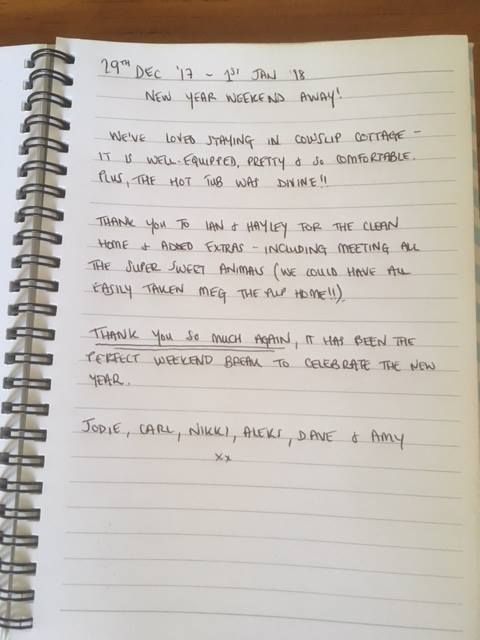 29TH DEC '17 - 1ST JAN '18
NEW YEAR WEEKEND AWAY!
WE'VE LOVED STAYING IN COWSLIP COTTAGE -
IT IS WELL-EQUIPPED, PRETTY & SO COMFORTABLE.
PLUS, THE HOT TUB WAS DIVINE!!
THANK YOU TO IAN & HAYLEY FOR THE CLEAN
HOME & ADDED EXTRAS - INCLUDING MEETING ALL
THE SUPER SWEET ANIMALS (WE COULD HAVE ALL
EASILY TAKEN MEG THE PUP HOME!!)
THANK YOU SO MUCH AGAIN, IT HAS BEEN THE
PERFECT WEEKEND BREAK TO CELEBRATE THE NEW
YEAR.
JODIE, CARL, NIKKI, ALEKS, DAVE & AMY
xx